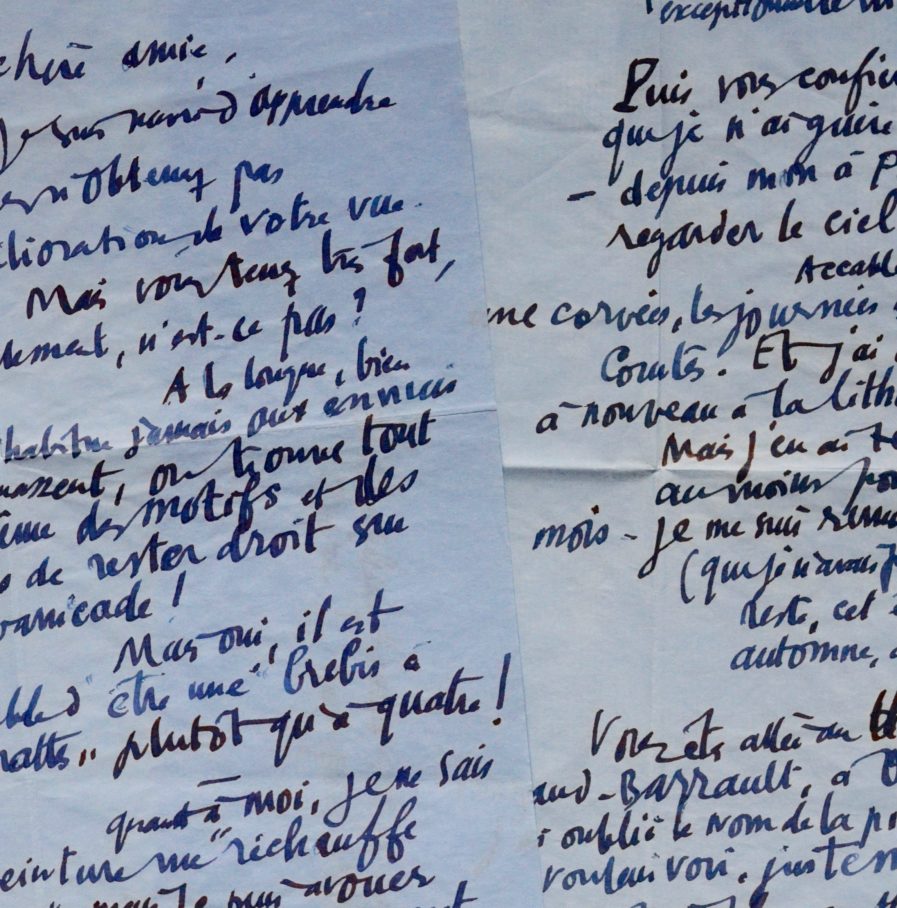 chère amie,
Je suis navré d'apprendre
n'obtenez pas
élioration de votre vue.
Mais vous tenez très fort,
lement, n'est-ce pas ?
A la longue, bien
habitue jamais aux ennuis
massent, on trouve tout
ême des motifs et des
s de rester droit sur
barricade !
Mais oui, il est
ble d'être une "brebis à
pattes" plutôt qu'à quatre !
quant à moi, je ne sais
peinture me "réchauffe
mais je puis avouer
exceptionnelle
Puis vous confier
que je n'ai guère
- depuis mon à P
regarder le ciel
Accablé
me corvées, les journées
Courtes. Et j'ai
à nouveau à la lith
Mais j'en ai te
au moins pou
mois - je me suis remi
(que je n'avais p
reste, cet
automne,
Vous êtes allée au
aud-Barrault, à
oublié le nom de la pi
voulais voir, justem